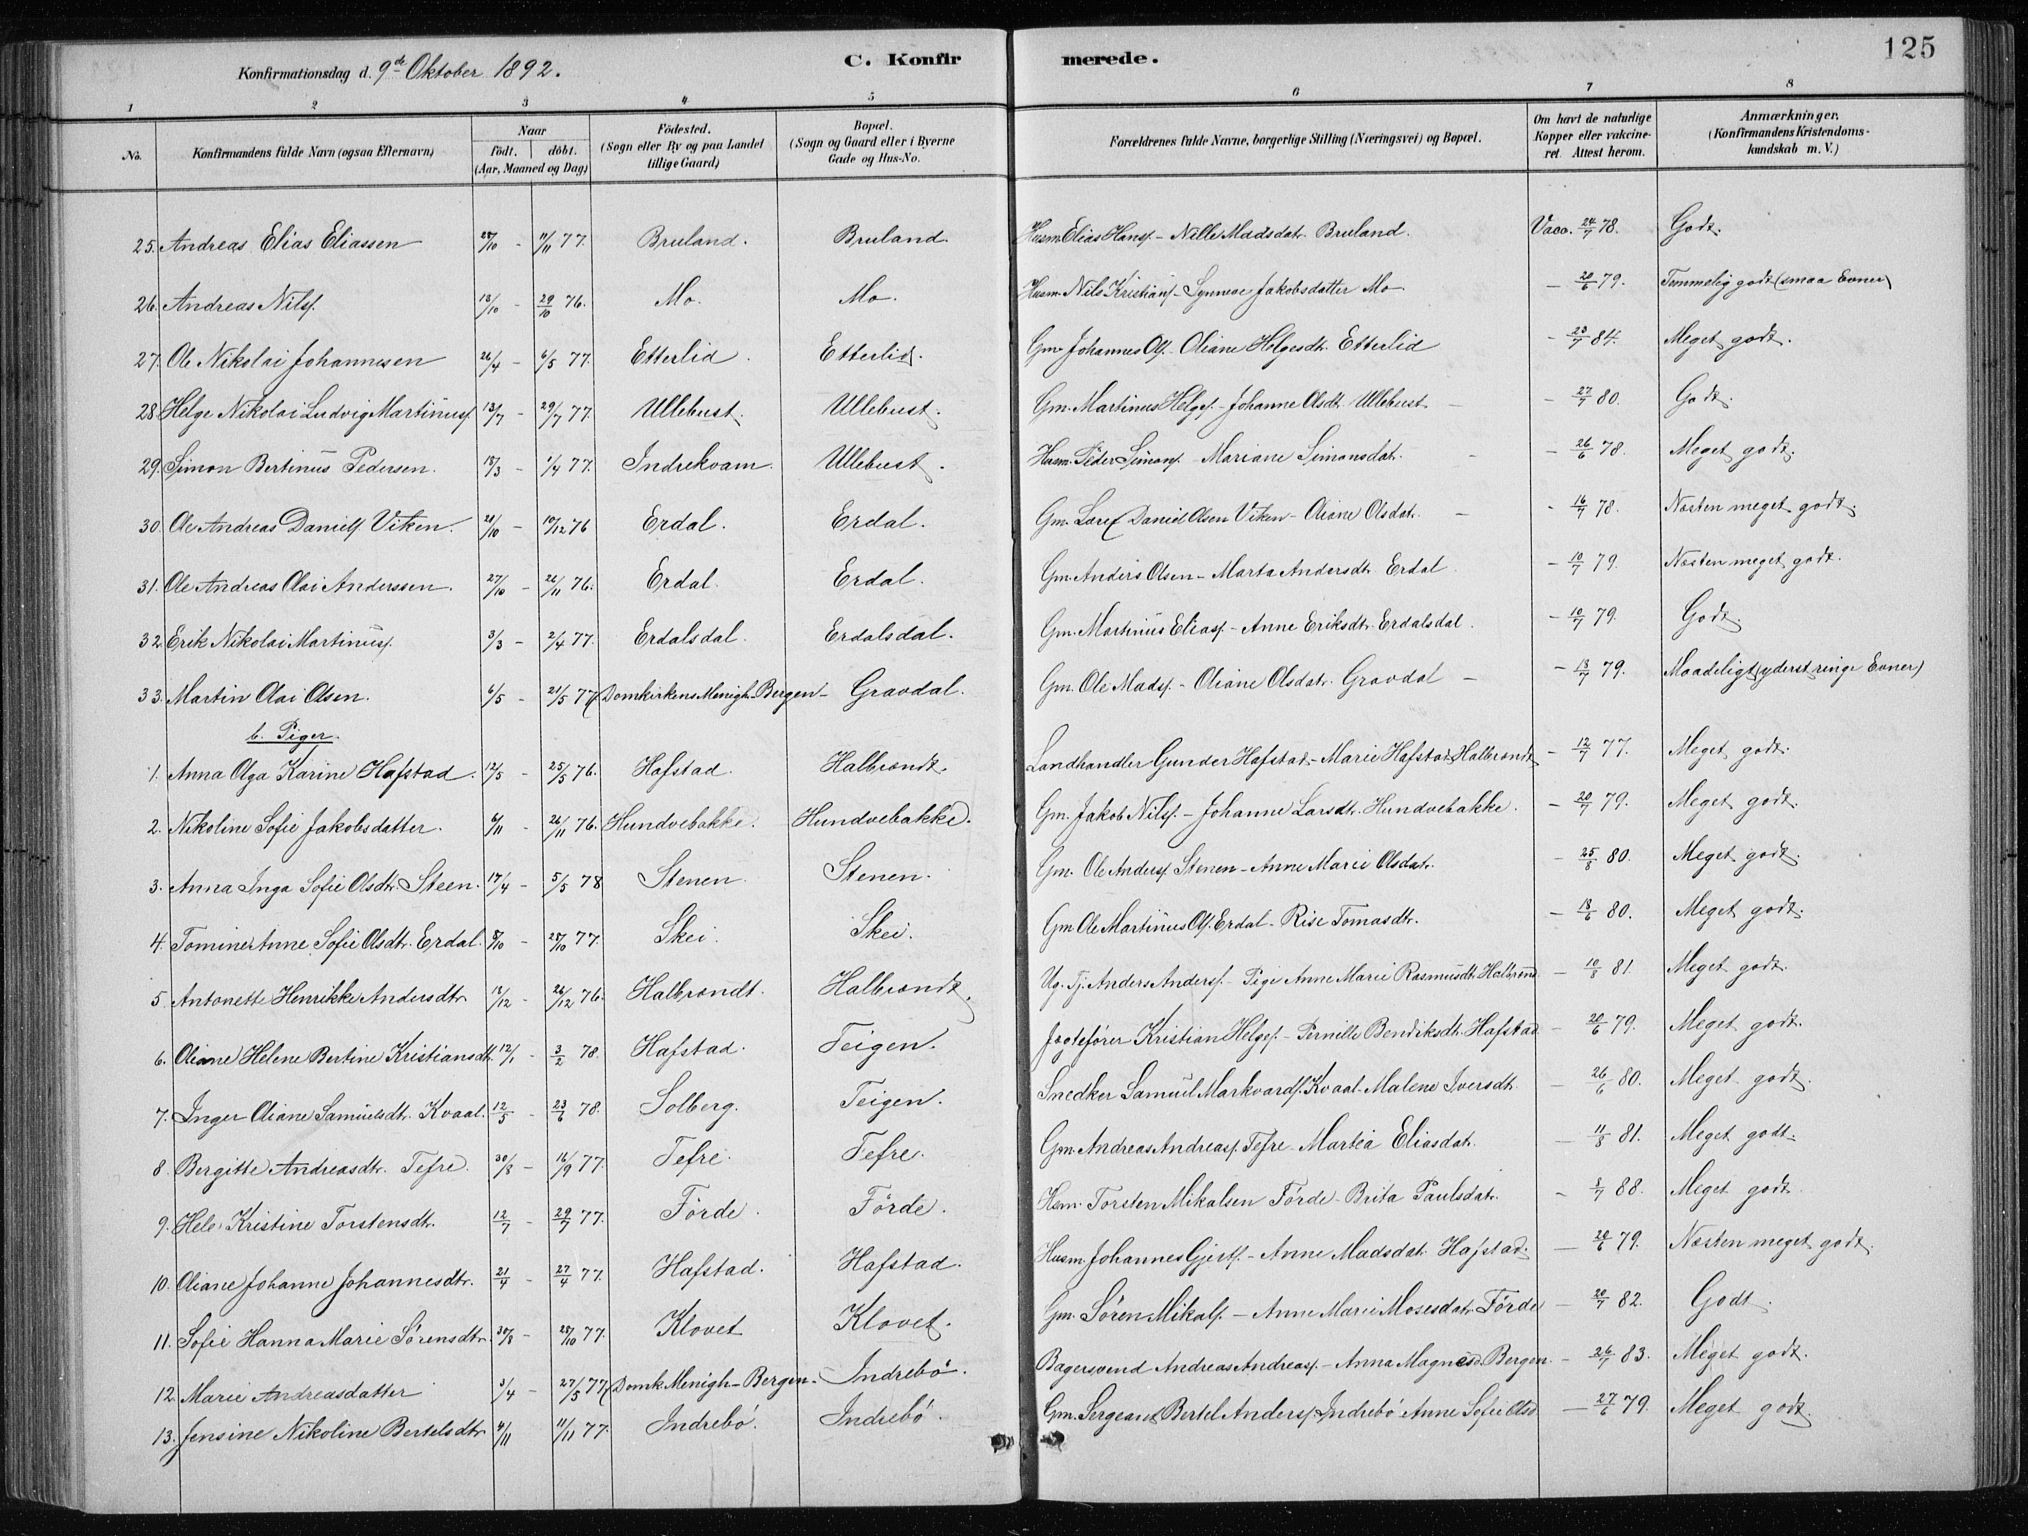 125
Konfirmationsdag d. 9de Oktober 1892. C. Konfirmerede.
1 2 3 4 5 6 7 8
No. Konfirmandens fulde Navn (ogsaa Efternavn) Naar født. døbt. (Aar, Maaned og Dag) Fødested. (Sogn eller By og paa Landet tillige Gaard) Bopæl. (Sogn og Gaard eller i Byerne Gade og Hus-No. Forældrenes fulde Navne, borgerlige Stilling (Næringsvei) og Bopæl. Om havt de naturlige Kopper eller vakcineret. Attest herom. Anmærkninger. (Konfirmandens Kristendomskundskab m. V.)
25. Andreas Elias Eliassen 28/10 - 11/11 77. Bruland. Bruland. Husm. Elias Hansf. - Nille Madsdat. Bruland. Vacc. 24/7 78. Godt.
26. Andreas Nilsf. 13/10 - 29/10 76. Mo. Mo. Husm. Nils Kristiansf. - Synneve Jakobsdatter Mo - 20/6 79. Temmelig godt (smaa Evner)
27. Ole Nikolai Johannesen 26/4 - 6/5 77. Etterlid. Etterlid. Gm. Johannes Olsf. - Oliane Helgesdt. Etterlid - 23/7 84. Meget godt.
28. Helge Nikolai Ludvig Martinusf. 13/7 - 29/7 77. Ullebust. Ullebust. Gm. Martinus Helgesf. - Johanne Olsdt. Ullebust - 27/7 80. Godt.
29. Simon Bertinus Pedersen. 18/3 - 1/4 77. Indrekvam. Ullebust. Husm. Peder Simonsf. Mariane Simonsdat. - 26/6 78. Meget godt.
30. Ole Andreas Danielsf. Viken. 21/10 - 10/12 76 Erdal. Erdal. Gm. Daniel Olsen Viken - Oliane Olsdat. - 16/7 78. Næsten meget godt.
31. Ole Andreas Olai Anderssen. 27/10 - 26/11 76. Erdal. Erdal. Gm. Anders Olsen - Marta Andersdt. Erdal - 10/7 79. Næsten meget godt.
32. Erik Nikolai Martinusf. 3/3 - 2/4 77. Erdalsdal. Erdalsdal. Gm. Martinus Eliasf. - Anne Eriksdt. Erdalsdal. - 10/7 79. Godt.
33. Martin Olai Olsen. 6/5 - 21/5 77. Domkirkens Menigh. Bergen - Gravdal. Gm. Ole Madsf. - Oliane Olsdat. Gravdal - 13/7 79. Maadeligt (yderst ringe Evner)
b. Piger.
1. Anna Olga Karine Hafstad. 12/5 - 25/5 76. Hafstad. Halbrendt. Landhandler Gunder Hafstad - Marie Hafstad Halbrendt - 12/7 77. Meget godt.
2. Nikoline Sofie Jakobsdatter. 6/11 - 26/11 76. Hundvebakke. Hundvebakke. Gm. Jakob Nilsf. - Johanne Larsdt. Hundvebakke. - 20/7 79. Meget godt.
3. Anna Inga Sofie Olsdtr. Steen. 17/4 - 5/5 78 Stenen. Stenen. Gm. Ole Andersf. Stenen - Anne Marie Olsdat. - 25/8 80. Meget godt.
4. Tomine Anne Sofie Olsdt. Erdal. 8/10 - 28/10 77. Skei. Skei. Gm. Ole Martinus Olsf. Erdal - Rise Tomasdtr. - 18/6 80. Meget godt.
5. Antonette Henrikke Andersdtr. 12/12 - 26/12 76. Halbrendt. Halbrendt. Ug. Tj. Anders Andersf. - Pige Anne Marie Rasmusdt. Halbrend. - 10/8 81. Meget godt.
6. Oliane Helene Bertine Kristiansdt. 12/1 - 3/2 78. Hafstad. Teigen. Jagtefører Kristian Helgesf. - Pernille Bendiksdt. Hafstad - 20/6 79. Meget godt.
7. Inger Oliane Samuelsdt. Kvaal. 12/5 - 23/6 78. Solberg. Teigen. Snedker Samuel Markvardsf. Kvaal - Malene Iversdt. - 26/6 80. Meget godt.
8. Bergitte Andreasdt. Tefre. 30/8 - 16/9 77. Tefre. Tefre. Gm. Andreas Andreasf. Tefre - Martea Eliasdat. - 11/8 81. Meget godt.
9. Kristine Torstensdt. 12/7 - 29/7 77. Førde. Førde. Hsm. Torsten Mikalsen Førde - Brita Paulsdat. - 8/7 88. Meget godt.
10. Oliane Johanne Johannesdtr. 21/4 - 27/4 77. Hafstad. Hafstad. Husm. Johannes Gjertsf. - Anne Madsdat. Hafstad. - 20/6 79. Næsten meget godt.
11. Sofie Hanna Marie Sørensdtr. 30/8 - 28/10 77. Klovet Klovet. Gm. Søren Mikalsf. - Anne Marie Mosesdat. Førde - 20/7 82. Godt.
12. Marie Andreasdatter 3/4 - 27/5 77. Domk. Menigh - Bergen. Indrebø. Bagersvend Andreas Andreasf. - Anna Magnesd. Bergen. - 26/7 83. Meget godt.
13. Jensine Nikoline Bertelsdtr. 4/11 11/11 77. Indrebø. Indrebø. Gm. Sergeant Bertel Andersf. Indrebø Anne Sofie Olsd. - 27/6 79. Meget godt.